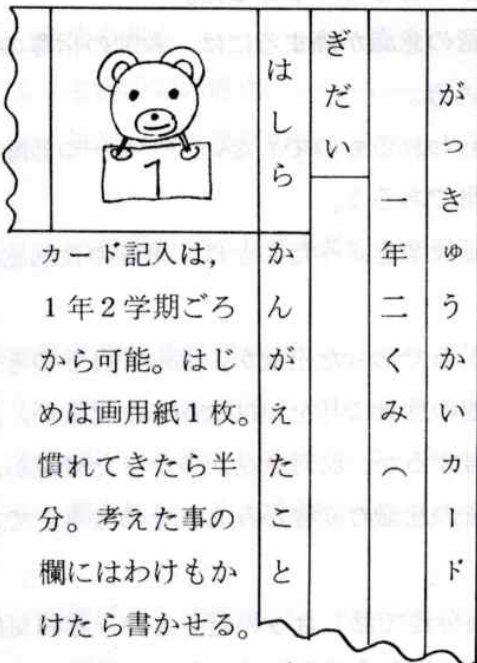 がっきゅうかいカード
一年二くみ（
ぎだい
はしらかんがえたこと
1
カード記入は，
1年2学期ごろ
から可能。はじ
めは画用紙1枚。
慣れてきたら半
分。考えた事の
欄にはわけもか
けたら書かせる。